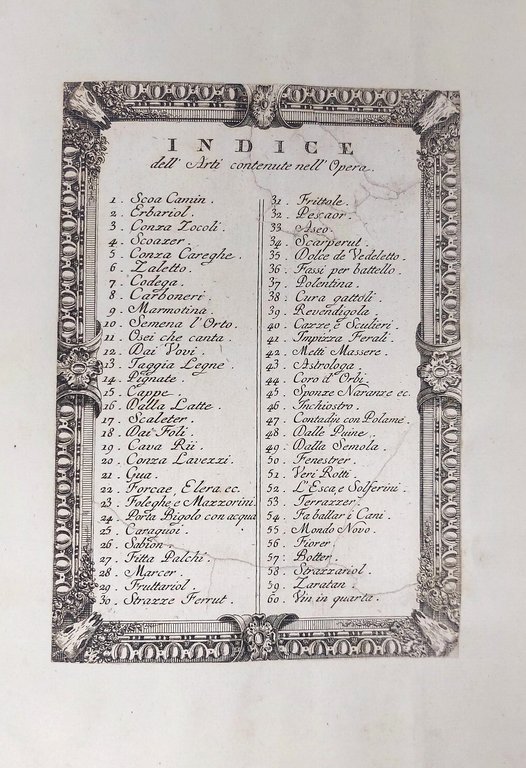 INDICE
dell' Arti contenute nell' Opera.
1. Scoa Camin.
2. Erbariol.
3. Conza Zocoli.
4. Scoazer.
5. Conza Careghe.
6. Zaletto.
7. Codega.
8. Carboneri.
9. Marmotina.
10. Semena l'Orto.
11. Osei che canta.
12. Dai Vovi.
13. Taggia Legne.
14. Pignate.
15. Cappe.
16. Dalla Latte.
17. Scaleter.
18. Dai Foli.
19. Cava Rii.
20. Conza Lavezzi.
21. Gua.
22. Forcae, Elera, ec.
23. Foleghe e Mazzorini.
24. Porta Bigolo con acqua
25. Caragnoi.
26. Sabion.
27. Fitta Palchi.
28. Marcer.
29. Fruttariol.
30. Strazze Ferrut.
31. Frittole.
32. Pescaor.
33. Aseo.
34. Scarperut.
35. Dolce de Vedeletto.
36. Fassi per battello.
37. Polentina.
38. Cura gattoli.
39. Revendigola.
40. Cazze e Sculieri.
41. Impizza Ferali.
42. Metti Massere.
43. Astrologa.
44. Coro d'Orbi.
45. Sponze Naranze ec.
46. Inchiostro.
47. Contadin con Polame.
48. Dalle Puine.
49. Dalla Semola.
50. Fenestrer.
51. Veri Rotti.
52. L'Esca, e Solferini.
53. Terrazzer.
54. Fa ballar i Cani.
55. Mondo Novo.
56. Fiorer.
57. Botter.
58. Strazzariol.
59. Zaratan.
60. Vin in quarta.